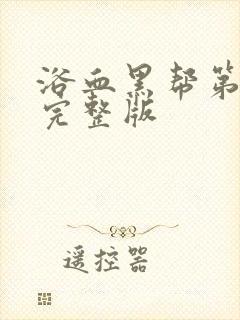 浴血黑帮第
完整版
遥控器